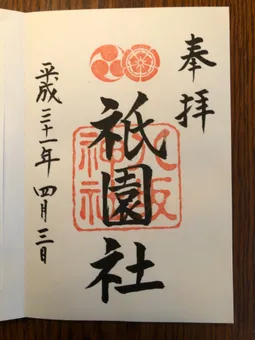 奉拝
祇園社
八坂神社
平成三十一年四月三日